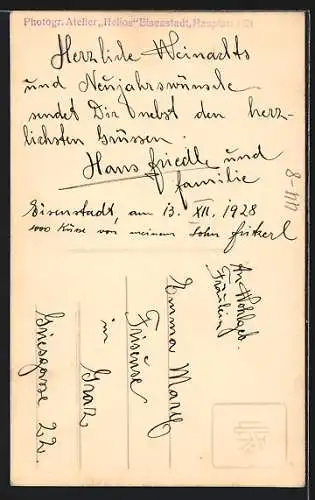 Photogr. Atelier „Helios" Eisenstadt, Hauptstr.
Herzliche Weinachts
und Neujahrswünsche
sendet Dir nebst den herz-
lichsten Grüssen.
Hans Friedle und
Familie
Eisenstadt, am 13. XII. 1928
1000 Küsse von meinem Sohn Fritzerl
An Wohlgeb.
Fräulein
Emma
Friseuse
in
Graz
Griesgasse 22.